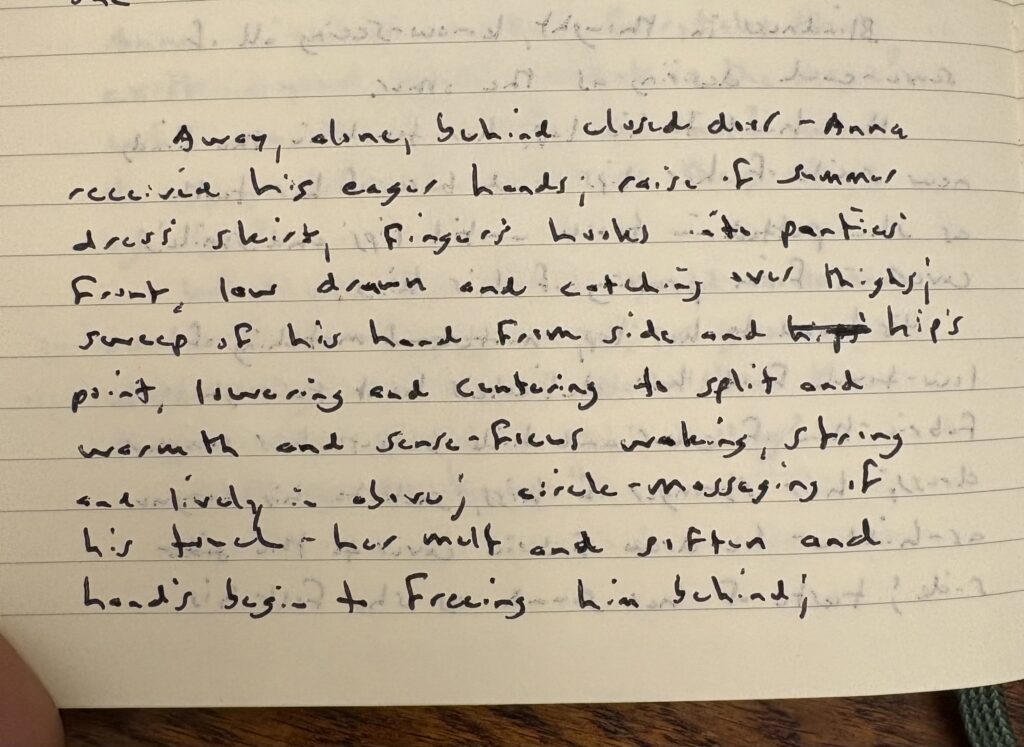 Away, alone, behind closed door - Anna
received his eager hands; raise of summer
dress' skirt, fingers' hooks into panties'
front, low drawn and catching over thighs;
sweep of his hand from side and hip's
point, lowering and centering to split and
warmth and sense-focus waking, strong
and lively in above; circle-massaging of
his touch - her melt and soften and
hand's begin to freeing him behind;